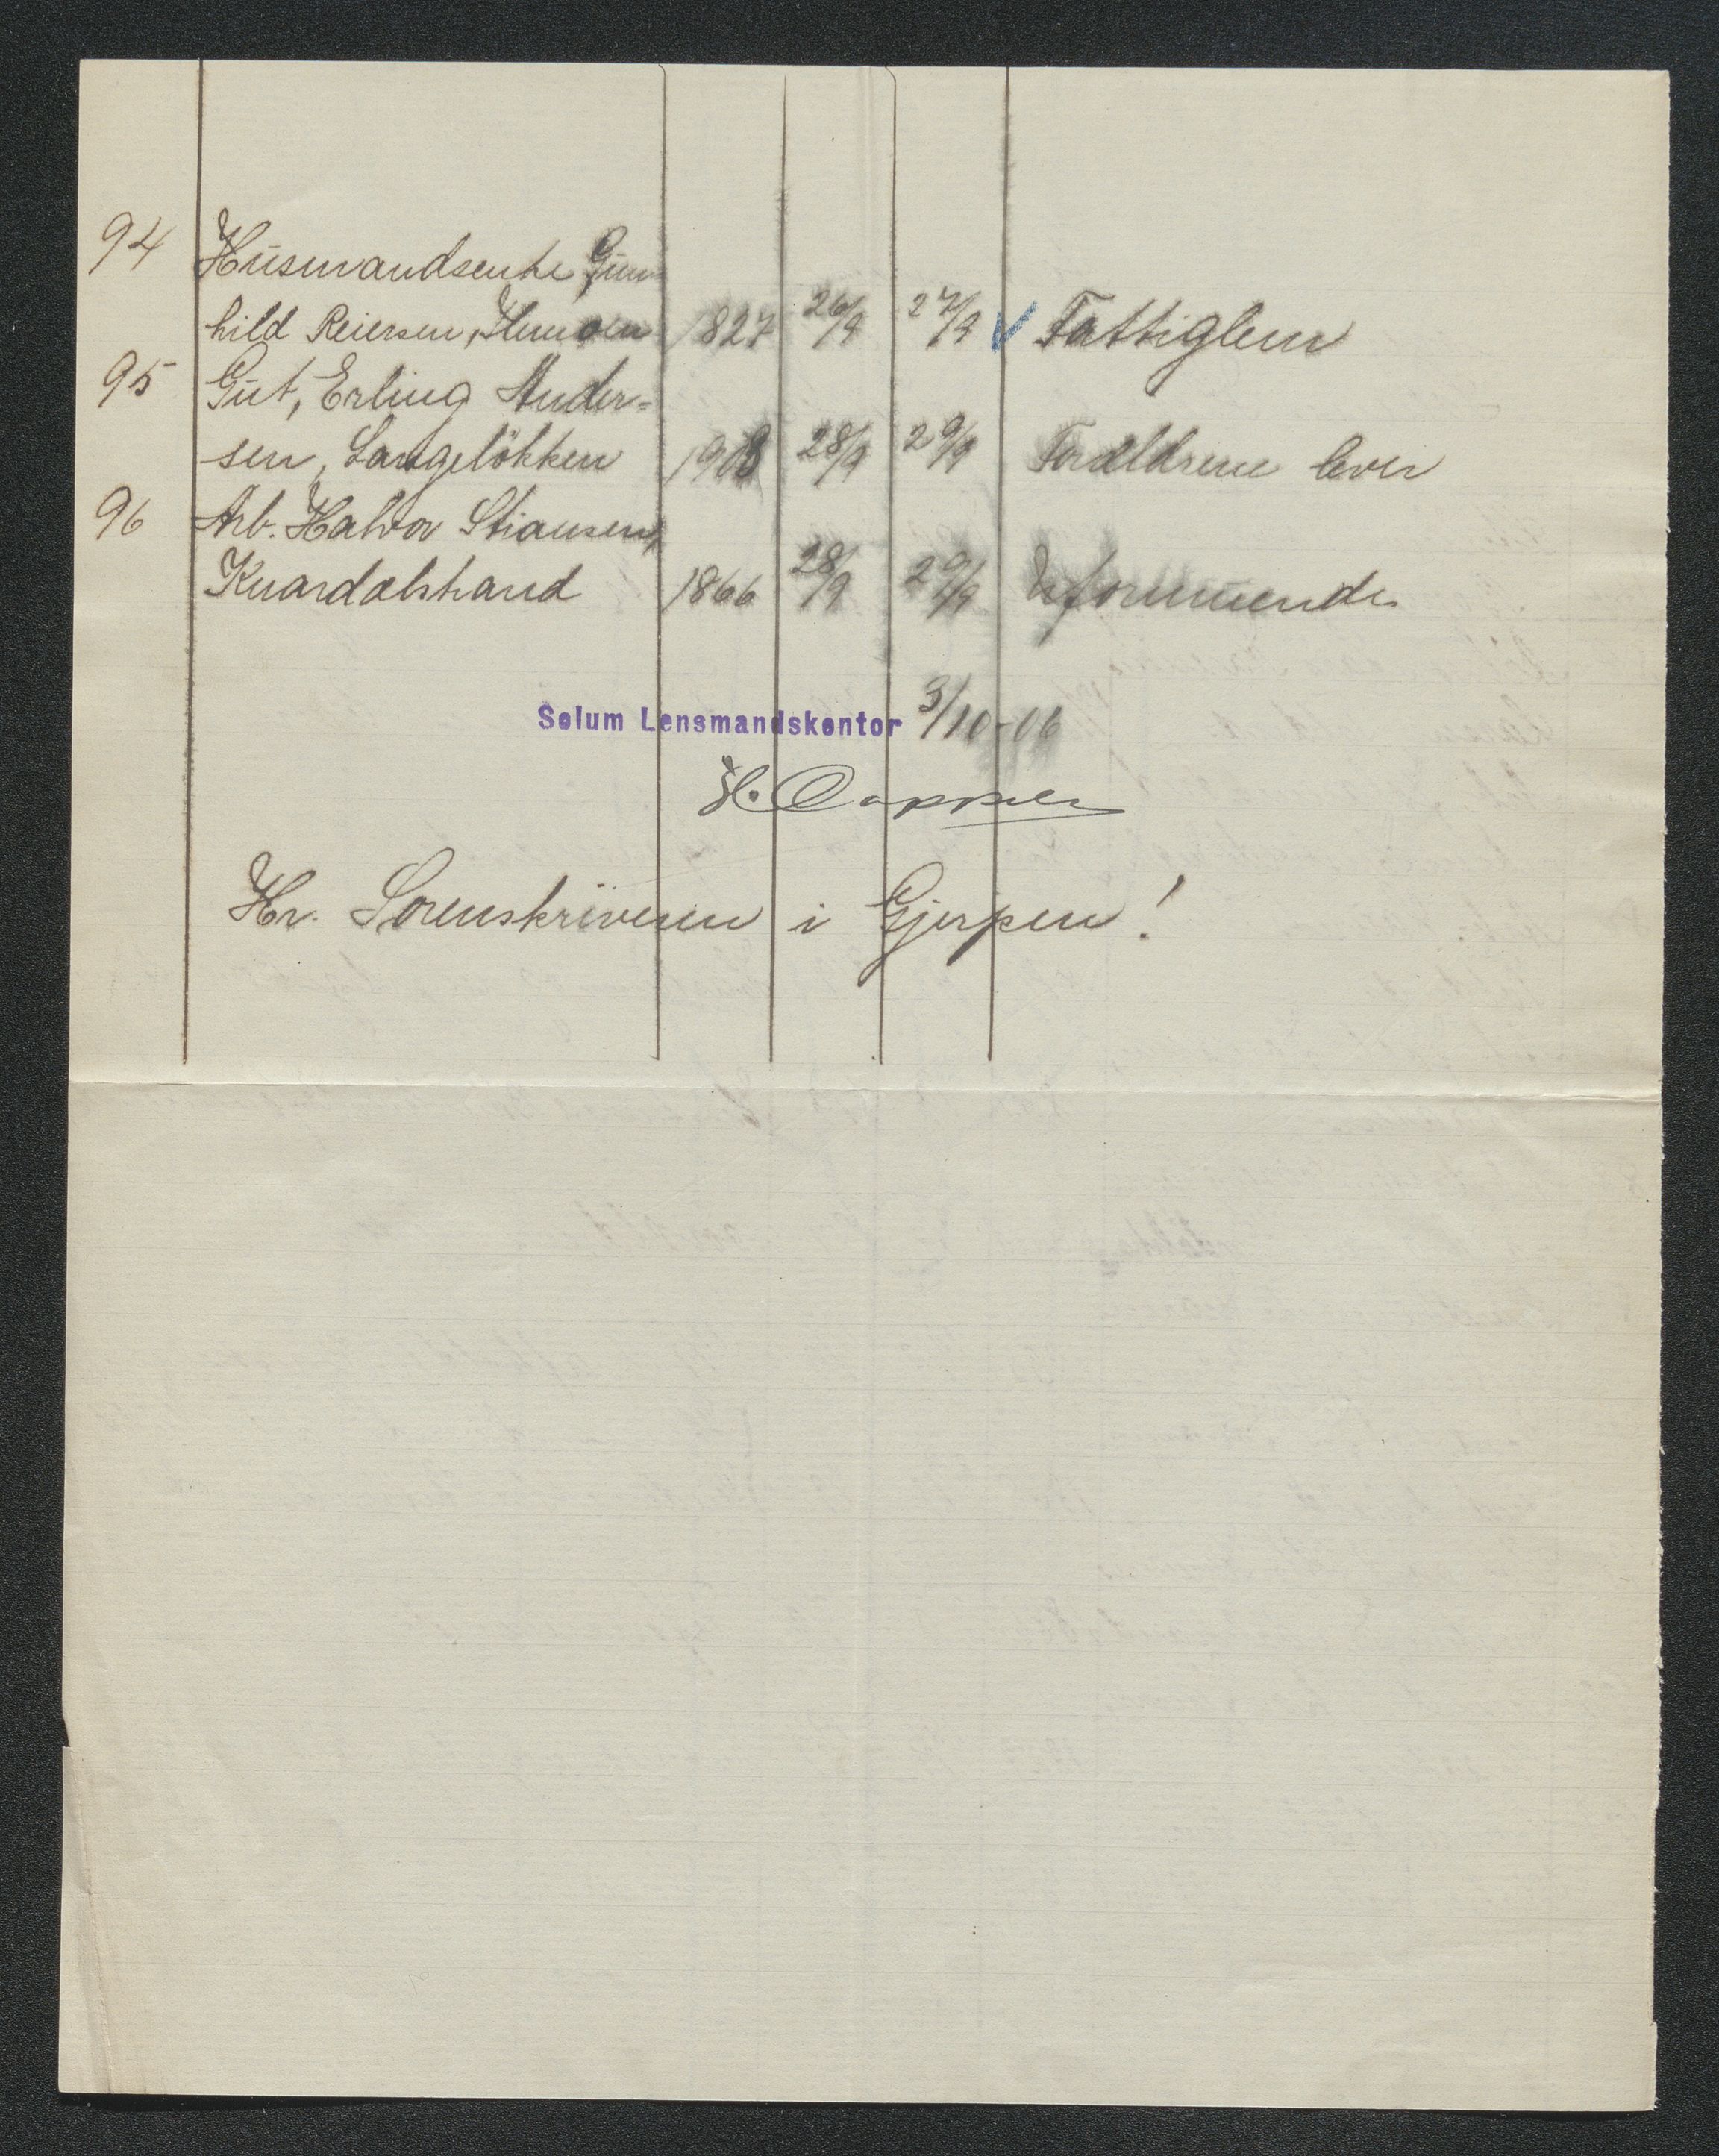 94 Husmandsenke Gun-
hild Reiersen, 1827 26/9 27/9 √ Fattiglem
95 Gut, Erling Ander=
sen, Langelökken 1903 28/9 29/9 Forældrene lever
96 Arb. Halvor Stiansen,
Knardalstrand 1866 28/9 29/9 Uformuende
Solum Lensmandskontor 3/10-06
H.
Hr. Sorenskriveren i Gjerpen!